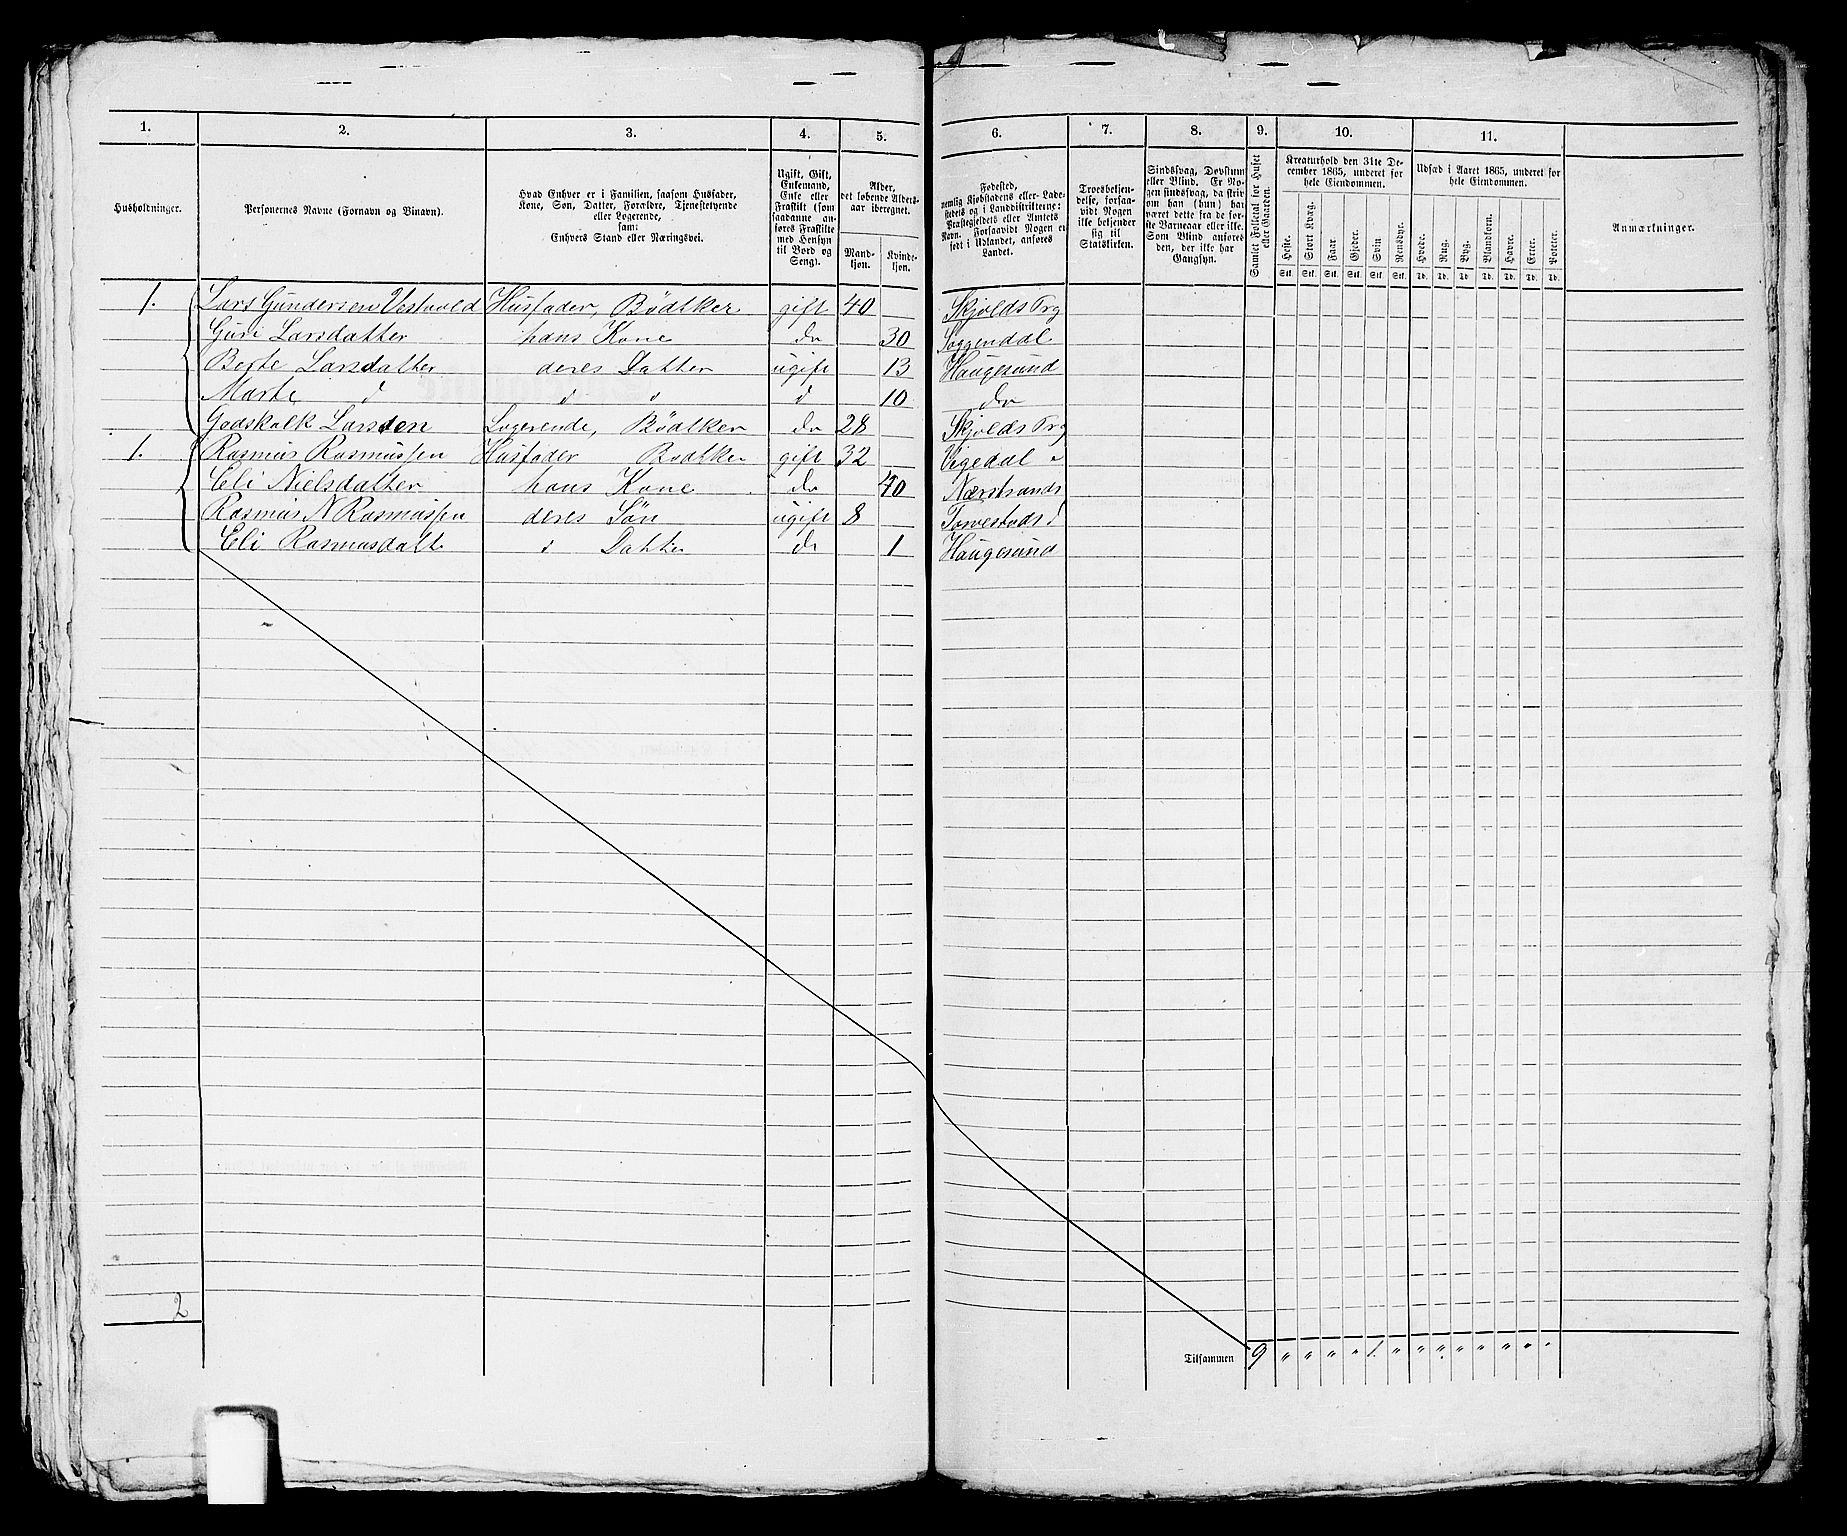 1. 2. 3. 4. 5. 6. 7. 8. 9. 10. 11.
Husholdninger.
Personernes Navne (Fornavn og Binavn).
Hvad Enhver er i Familien, saasom Husfader,
Kone, Søn, Datter, Forældre, Tjenestetyende
eller Logerende,
samt
Enhvers Stand eller Næringsvei.
Ugift, Gift,
Enkemand,
Enke eller
Fraskilt (som
saadanne an-
føres Fraskilte
med Hensyn
til Bord og
Seng).
Alder,
det løbende Alders-
aar iberegnet.
Mand-
kjøn.
Kvinde-
kjøn.
Fødested,
nemlig Kjøbstadens eller Lade-
stedets og i Landdistrikterne:
Præstegjeldets eller Amtets
Navn. Forsaavidt Nogen er
født i Udlandet, anføres
Landet.
Troesbekjen-
delse, forsaa-
vidt Nogen
ikke bekjender
sig til
Statskirken.
Sindssvag, Døvstum
eller Blind. Er No-
gen sindssvag, da skriv
om han (hun) har
været dette fra de før-
ste Barneaar eller ikke.
Som Blind anføres
den, der ikke har
Gangsyn.
Samlet Folketal for Huset
eller Gaarden.
Kreaturhold den 31te De-
cember 1865, underet for
hele Eiendommen.
Heste. Stort Kvæg. Faar. Gjeder. Svin Rensdyr.
Stk. Stk. Stk. Stk. Stk. Stk.
Udsæd i Aaret 1865, underet for
hele Eiendommen.
Hvede. Rug. Byg. Blandkorn. Havre. Erter. Poteter.
Td. Td. Td Td. Td. Td. Td.
Anmærkninger.
1. Lars Gundersen Husfader, Bødtker gift 40 Skjolds Prg
Guri Larsdatter hans Kone do 30 Soggendal
Berte Larsdatter deres Datter ugift 13 Haugesund
Marte d d d 10 do
Godskalk Larssen Logerende, Bødtker do 28 Skjolds Prg
1. Rasmus Rasmussen Husfader Bødtker gift 32 "
Eli Nielsdatter hans Kone do 40 Nærstrands
Rasmus N Rasmussen deres Søn ugift 8 Torvestads
Eli Rasmusdatt d Datter do 1 Haugesund
2
Tilsammen 9 " " " " 1 " " " " " " " "